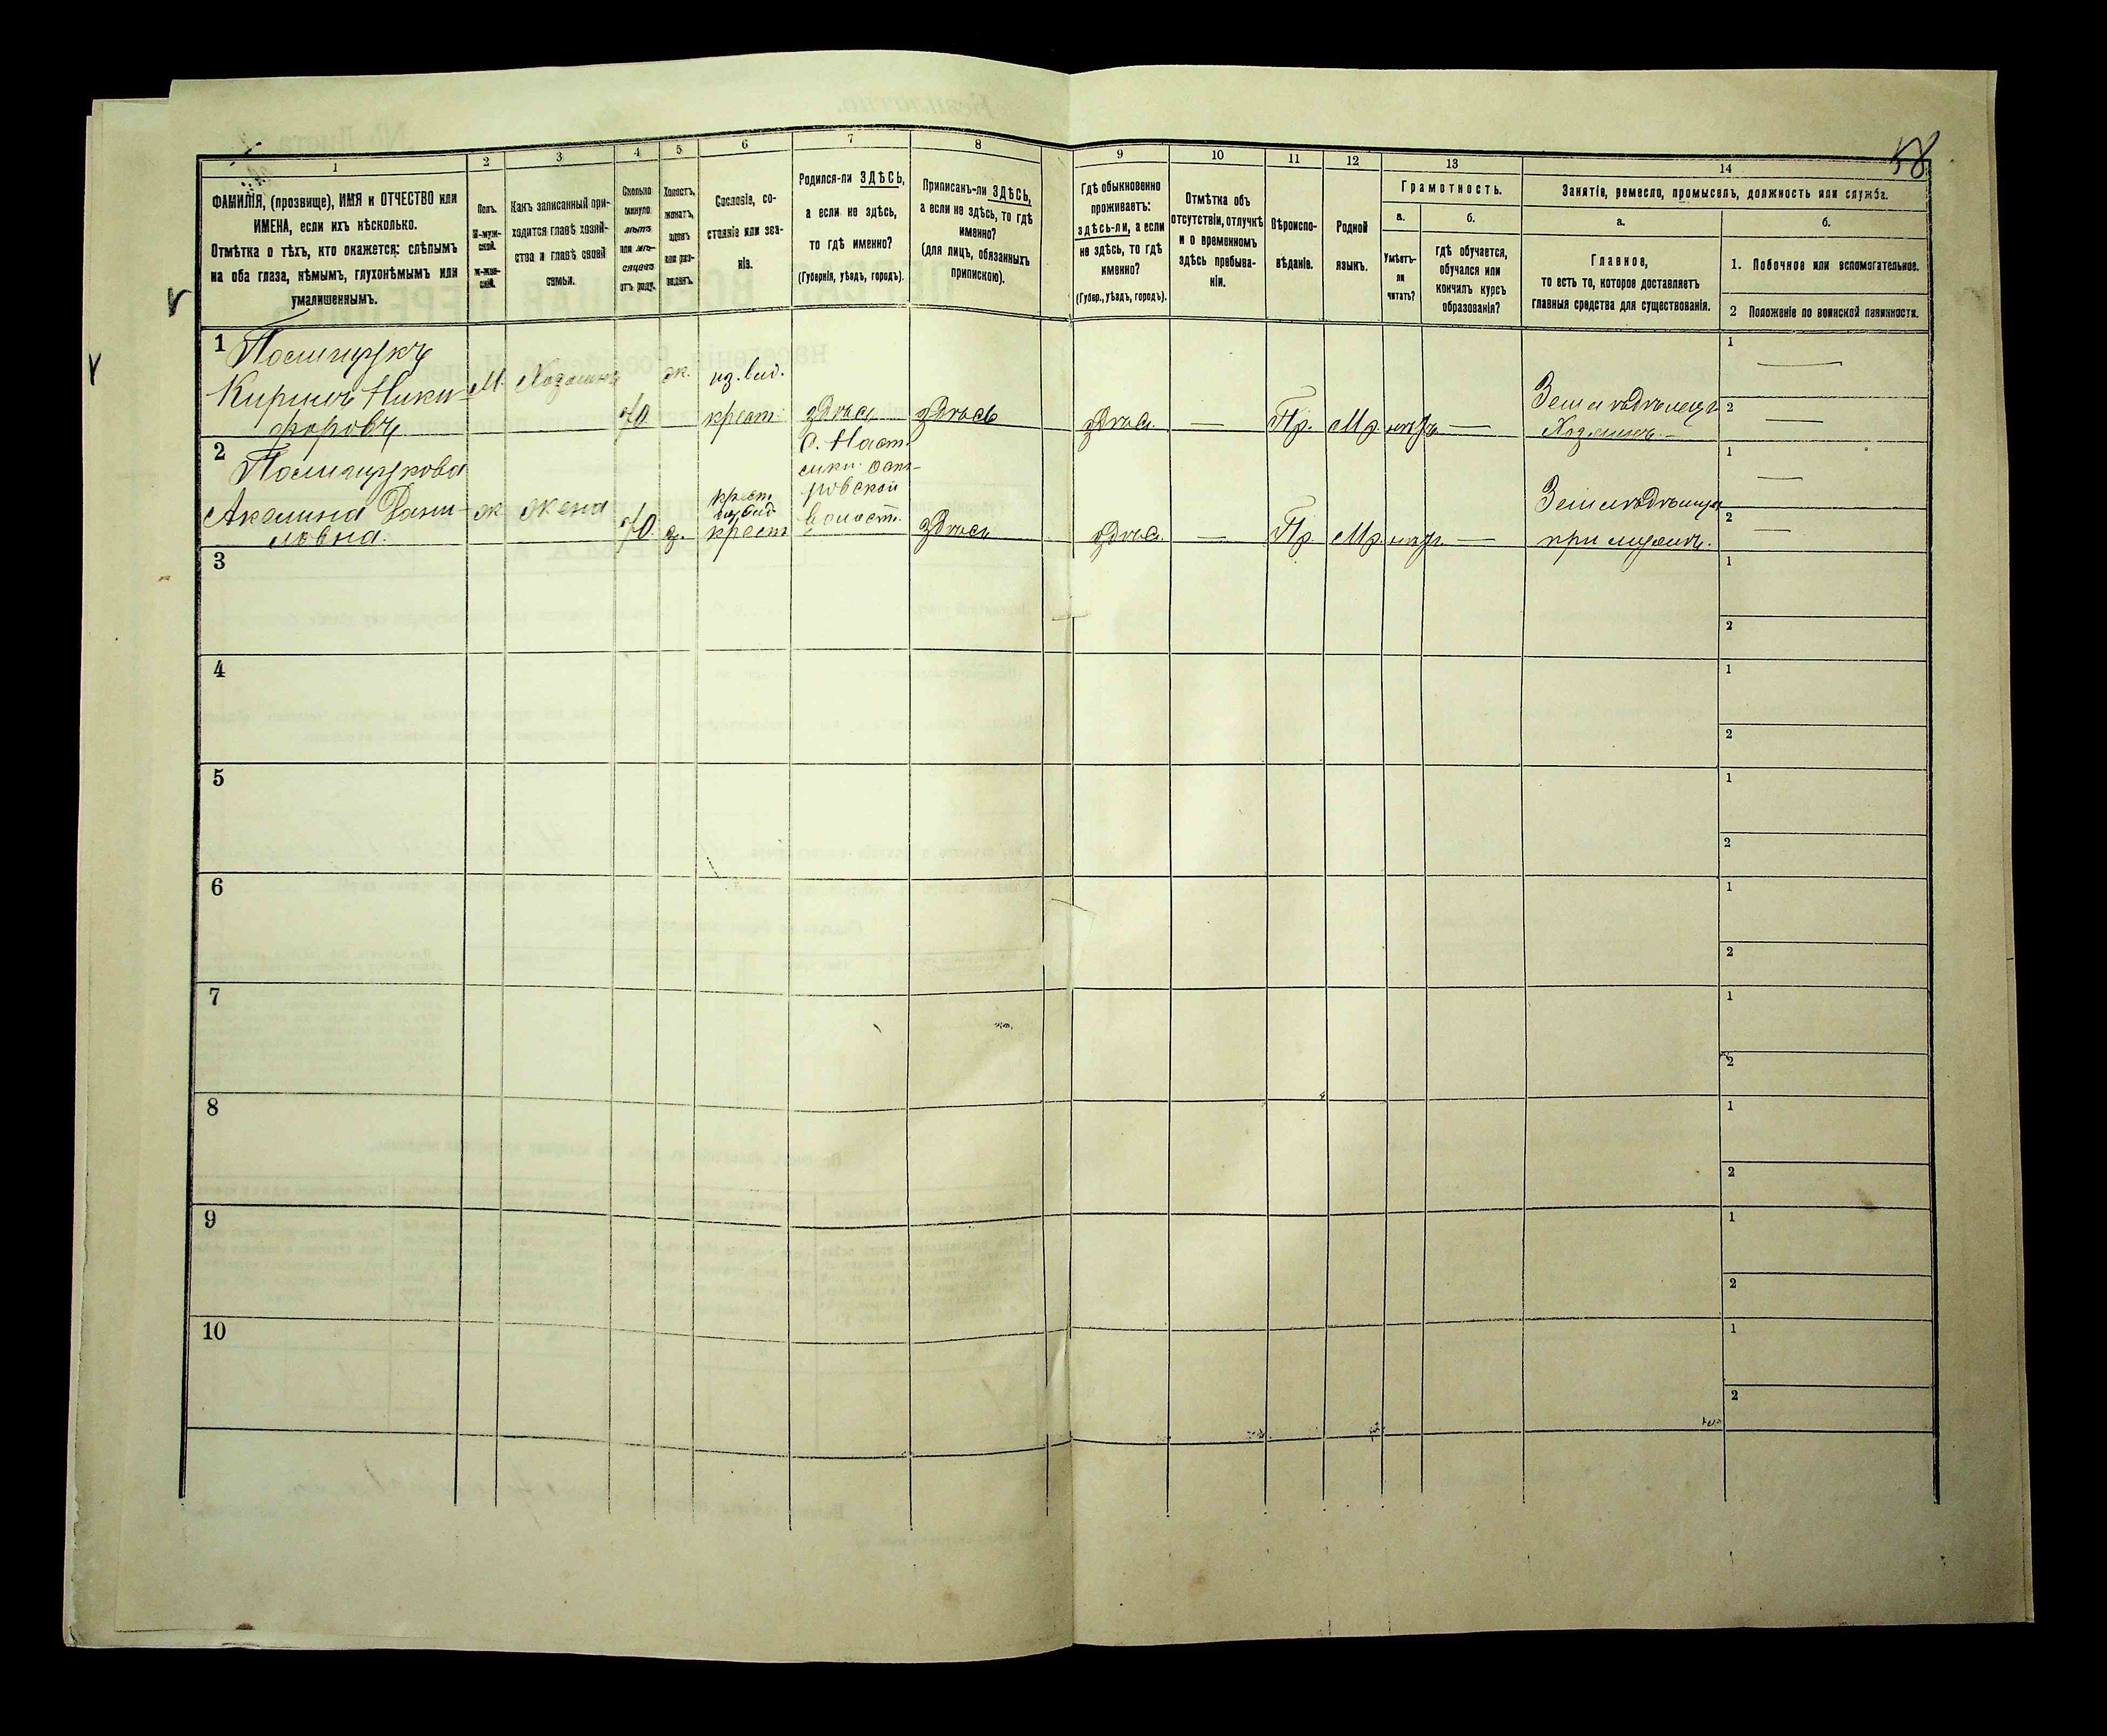 58
1
2
3
4
5
6
7
8
9
10
11
12
13
14
ФАМИЛІЯ, (прозвище), ИМЯ и ОТЧЕСТВО или
ИМЕНА, если ихъ нѣсколько.
Отмѣтка о тѣхъ, кто окажется: слѣпымъ
на оба глаза, нѣмымъ, глухонѣмымъ или
умалишеннымъ.
Полъ.
М-муж-
ской.
ж-жен-
скій.
Какъ записанный при-
ходится главѣ хозяй-
ства и главѣ своей
семьи.
Сколько
минуло
лѣтъ
или мѣ-
сяцевъ
отъ роду.
Холостъ,
женатъ,
вдовъ
или раз-
веденъ.
Сословіе, со-
стояніе или зва-
ніе.
Родился-ли ЗДѢСЬ,
а если не здѣсь,
то гдѣ именно?
(Губернія, уѣздъ, городъ).
Приписанъ-ли ЗДѢСЬ,
а если не здѣсь, то гдѣ
именно?
(для лицъ, обязанныхъ
припискою).
Гдѣ обыкновенно
проживаетъ:
здѣсь-ли, а если
не здѣсь, то гдѣ
именно?
(Губер., уѣздъ, городъ).
Отмѣтка объ
отсутствіи, отлучкѣ
и о временномъ
здѣсь пребыва-
ніи.
Вѣроиспо-
вѣданіе.
Родной
языкъ.
Грамотность.
а.
б.
Умѣетъ-
ли
читать?
гдѣ обучается,
обучался или
кончилъ курсъ
образованія?
Занятія, ремесло, промыселъ, должность или служба.
а.
б.
Главное,
то есть то, которое доставляетъ
главныя средства для существованія.
1. Побочное или вспомогательное.
2 Положеніе по воинской повинности.
1
Полищукъ
Кирилъ Ники-
форовъ
М.
Хозяинъ
70
ж.
из. вид.
крест.
здѣсь
здѣсь
здѣсь
—
Пр.
Мр.
нѣтъ
—
Земледѣлецъ
Хозяинъ. —
1 —
2 —
2
Полищукова
Акелина Дани-
ловна.
ж
жена
70
з.
крест
крест
волост.
здѣсь
здѣсь.
—
Пр
Мр
нѣтъ.
—
при мужѣ.
1 —
2 —
3
1
2
4
1
2
5
1
2
6
1
2
7
1
2
8
1
2
9
1
2
10
1
2